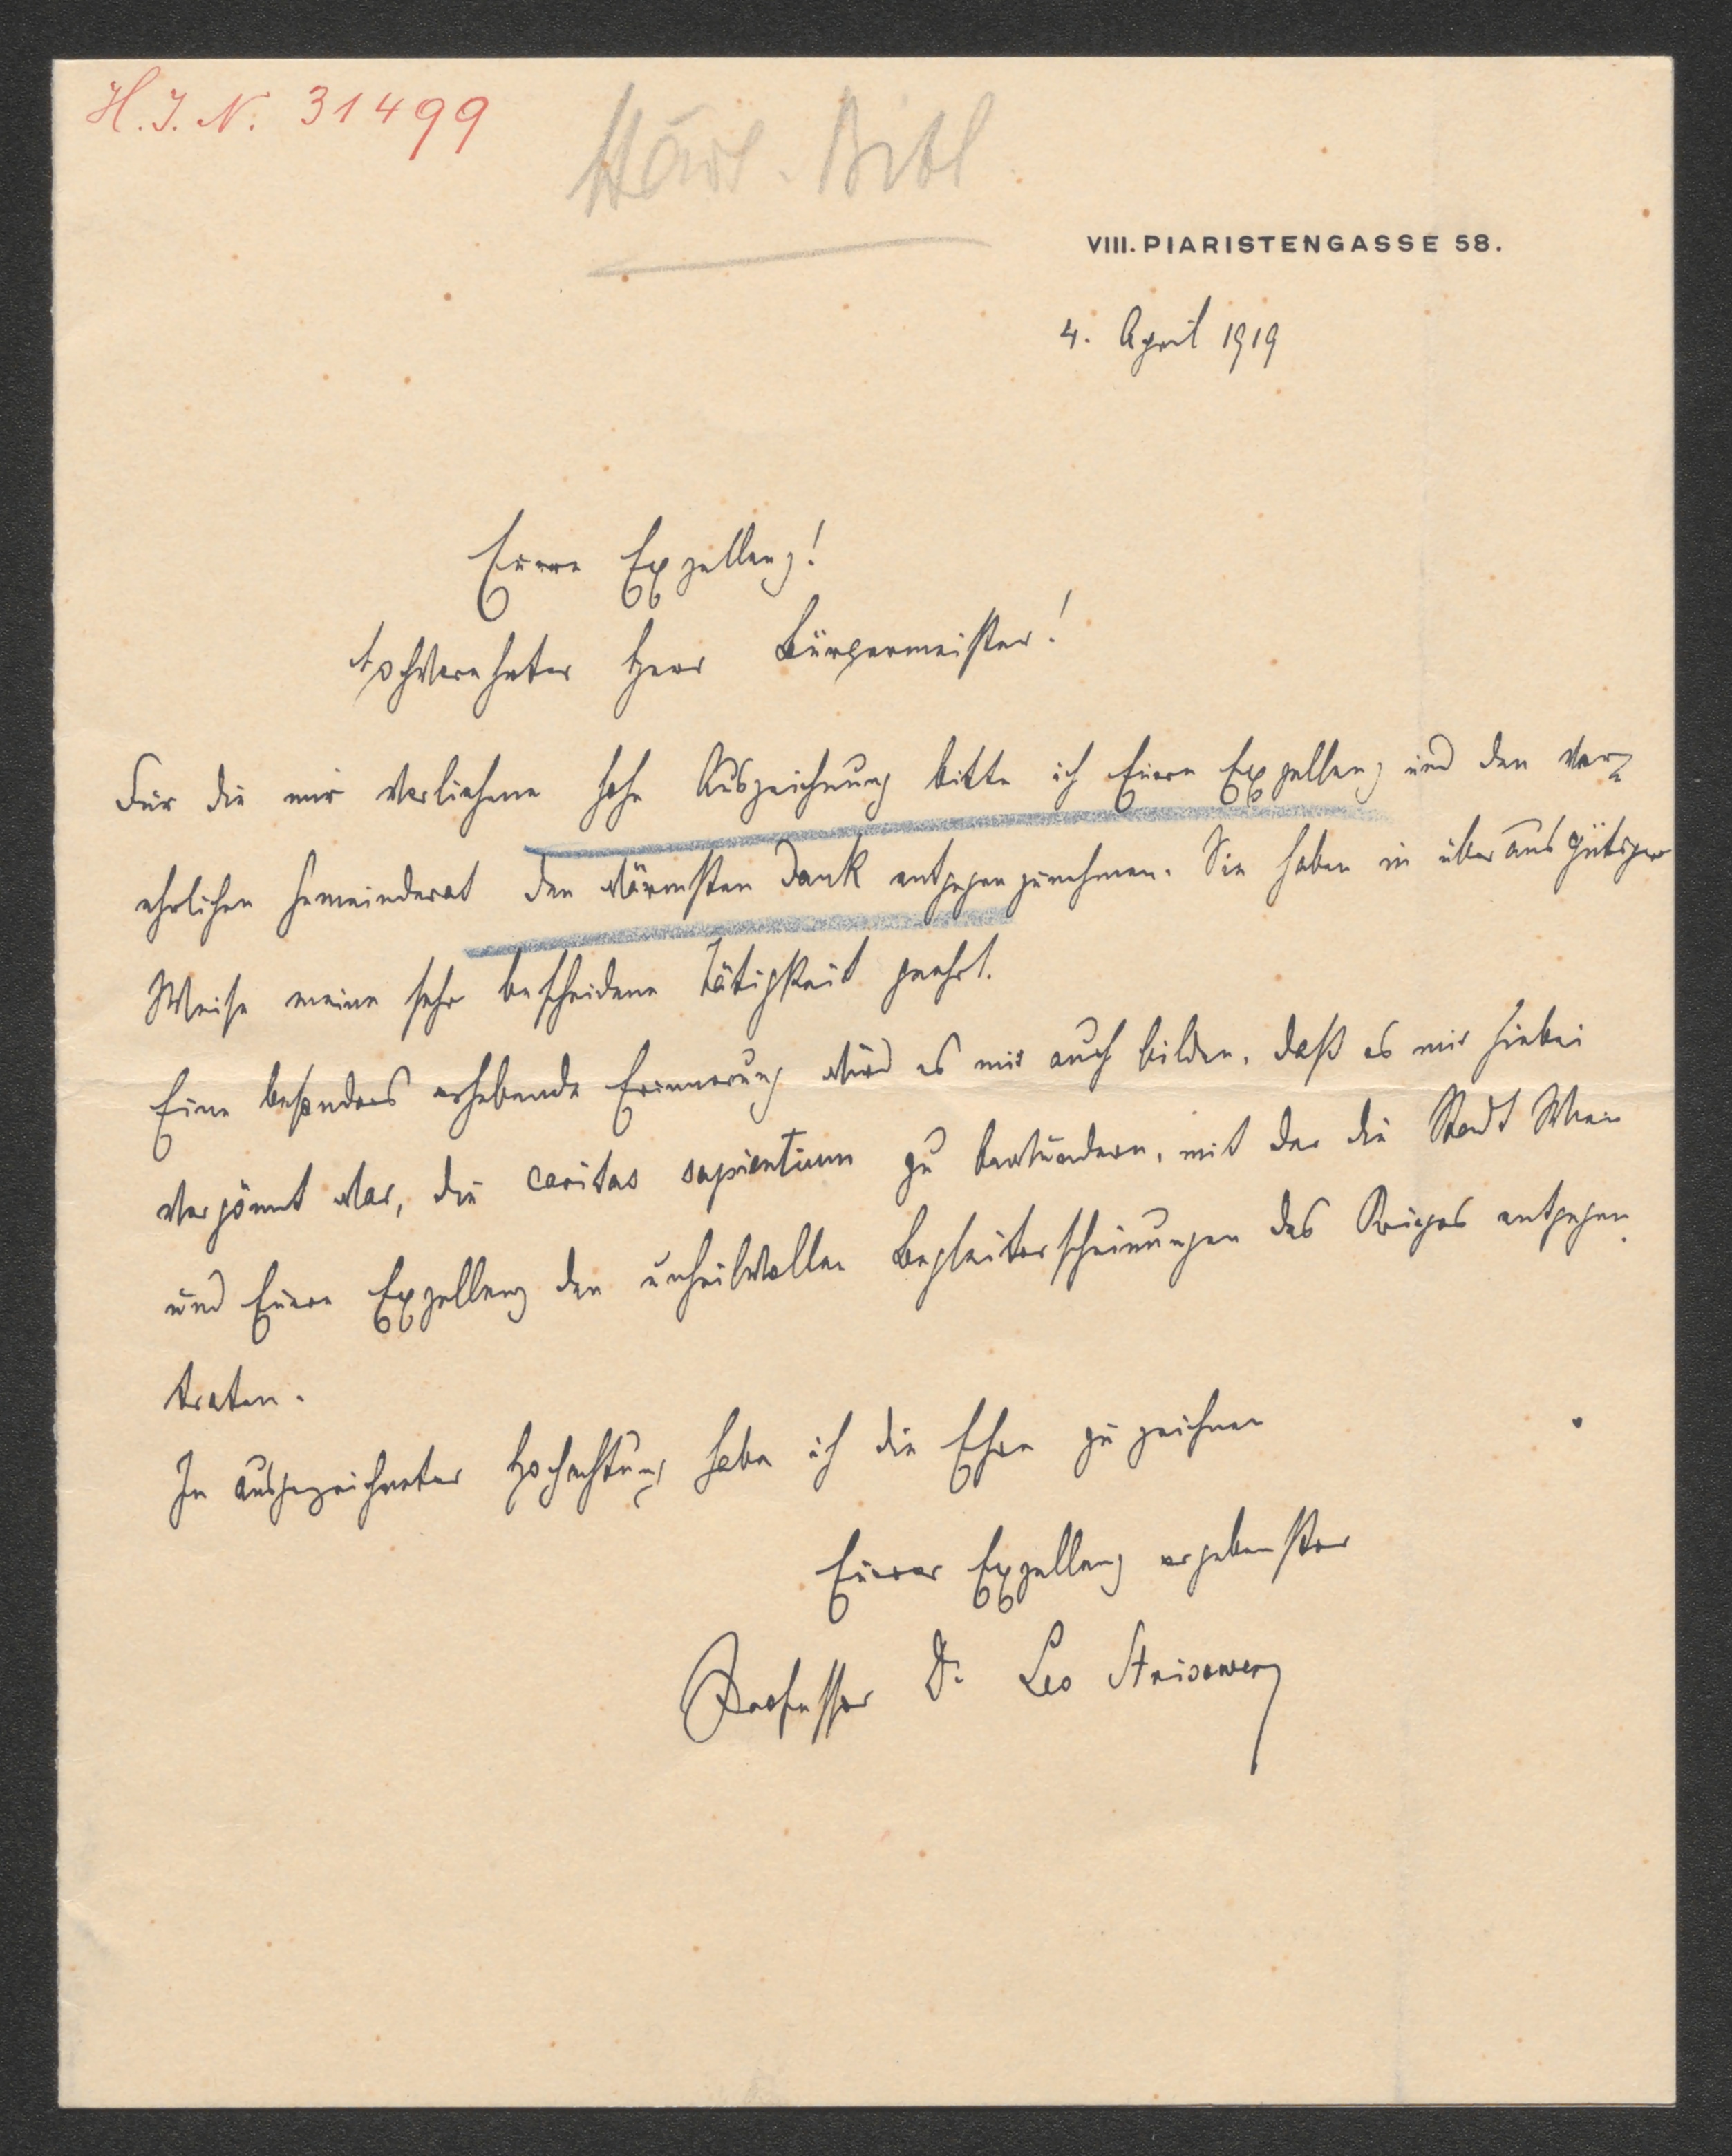 H. I. N. 31499
VIII. PIARISTENGASSE 58.
4. April 1919
Euere Exzellenz!
Hochverehrter Herr Bürgermeister!
Für die mir verliehene hohe Auszeichnung bitte ich Euere Exzellenz und den ver-
ehrlichen Gemeinderat den wärmsten Dank entgegenzunehmen. Sie haben in überaus gütiger
Weise meine sehr bescheidene Tätigkeit geehrt.
Eine besonders erhebende Erinnerung wird es mir auch bilden, daß es mir hiebei
vergönnt war, die caritas sapientium zu bewundern, mit der die Stadt Wien
und Euere Exzellenz den unheilvollen Begleiterscheinungen des Krieges entgegen
traten.
In ausgezeichneter Hochachtung habe ich die Ehre zu zeichnen
Euerer Exzellenz ergebenster
Professor Dr. Leo Strisower